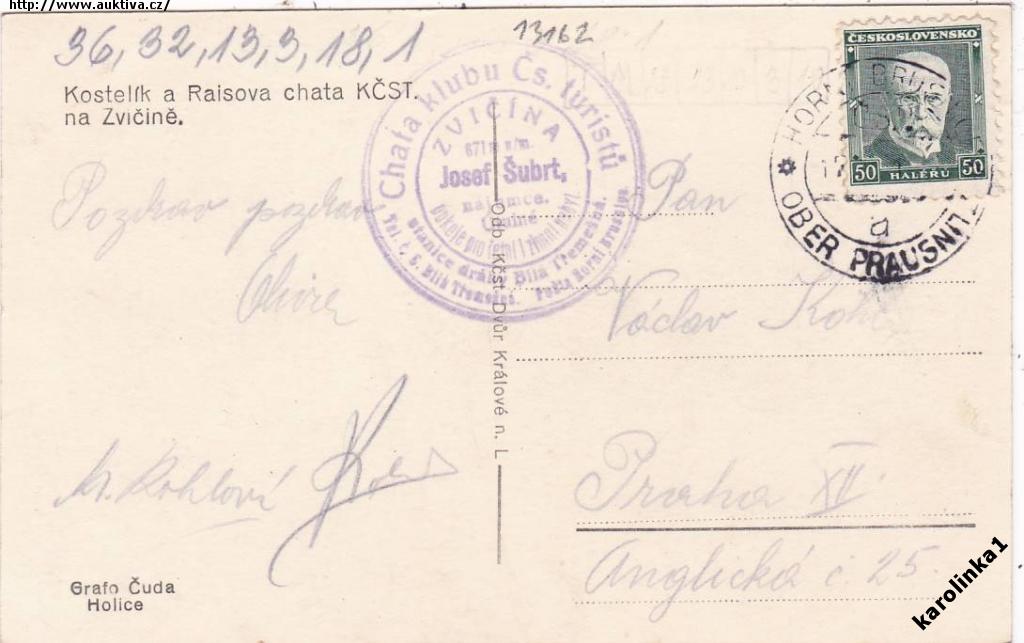 http://www.auktiva.cz/
36, 32, 13, 3, 18, 1
13162
Kostelík a Raisova chata KČST.
na Zvičině.
Chata klubu Čs. turistů
ZVIČINA
671 m n/m.
Josef Šubrt,
nájemce.
pokoje pro letní i zimní
stanice dráhy Bílá Třemešná.
Tel. č. 6. Bílá Třemešná. Pošta Horní Brusnice
ČESKOSLOVENSKO
50 HALÉŘŮ 50
HORNÍ
a
OBER PRAUSNIT
Pozdrav
Pan
Václav
Odb. KČST Dvůr Králové n. L
Kohlová
Praha XII
Anglická č 25.
Grafo Čuda
Holice
karolinka1